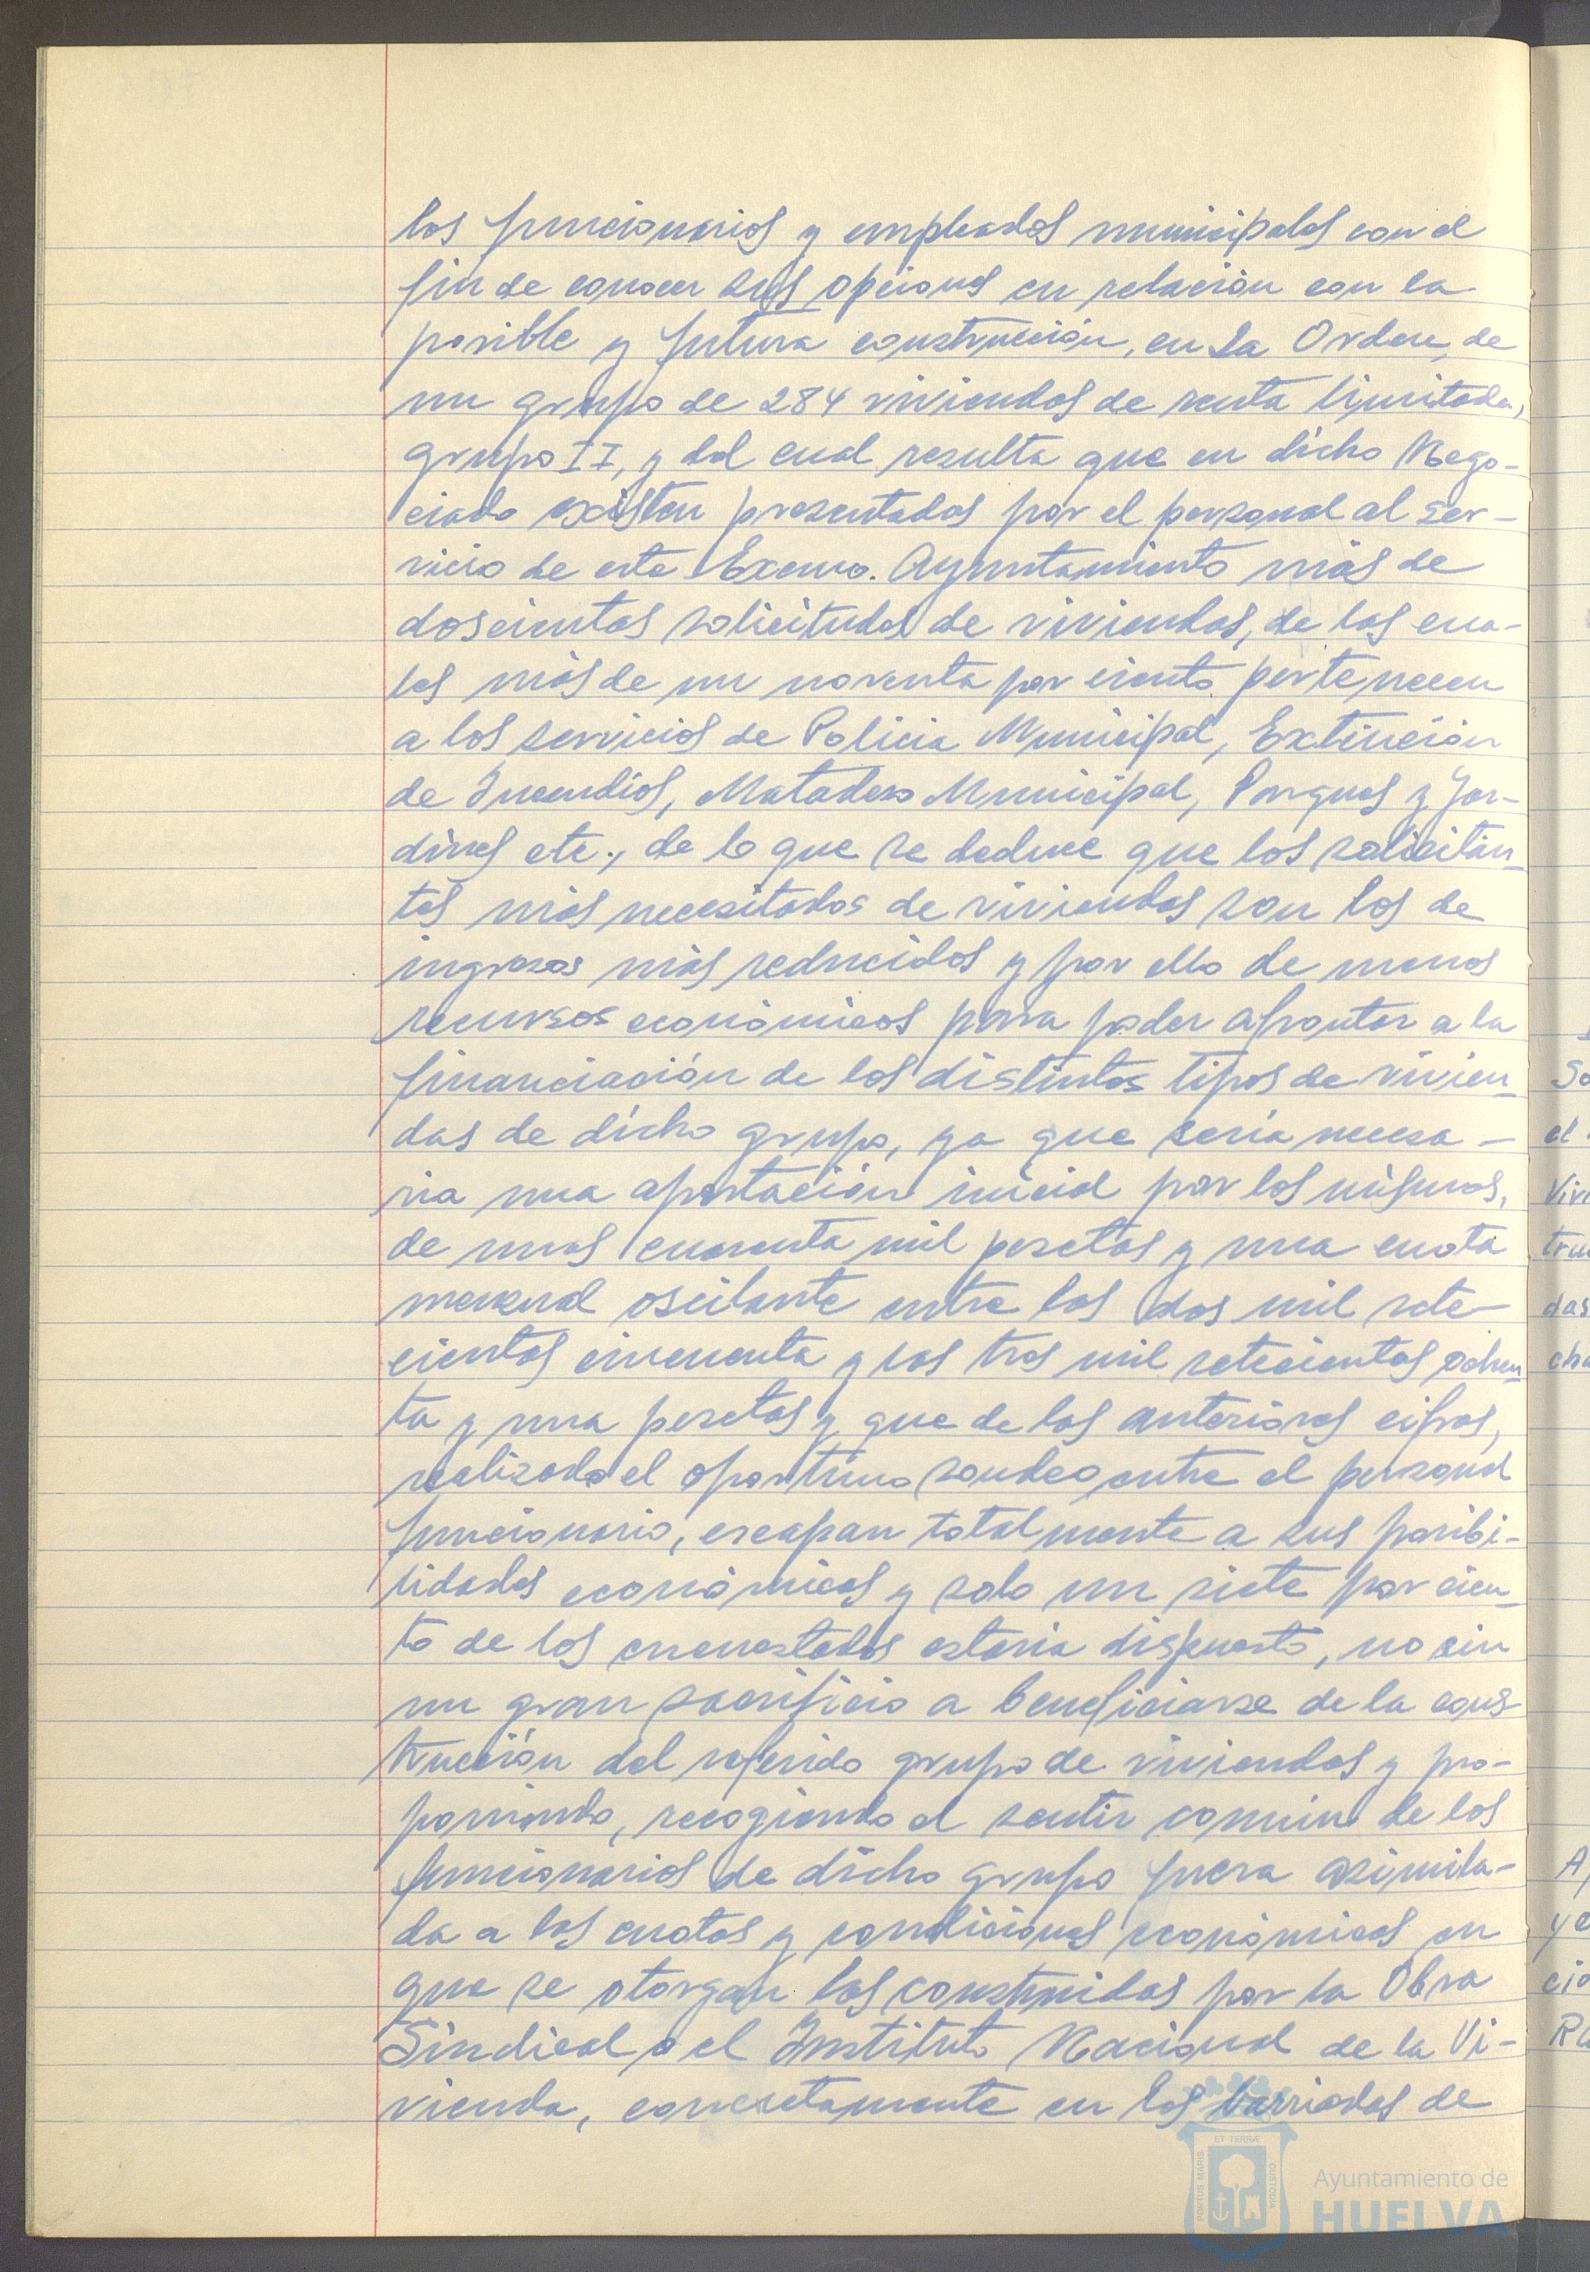 los funcionarios y empleados municipales con el
fin de conocer sus opciones en relación con la
posible y futura construcción, en La Orden, de
un grupo de 284 viviendas de renta limitada,
grupo II, y del cual resulta que en dicho Nego-
ciado existen presentadas por el personal al ser-
vicio de este Excmo. Ayuntamiento más de
doscientas solicitudes de viviendas, de las cua-
les más de un noventa por ciento pertenecen
a los servicios de Policia Municipal, Extinción
de Incendios, Matadero Municipal, Parques y Jar-
dines etc., de lo que se deduce que los solicitan-
tes más necesitados de viviendas son los de
ingresos más reducidos y por ello de menos
recursos económicos para poder afrontar a la
financiación de los distintos tipos de vivien-
das de dicho grupo, ya que sería necesa-
ria una aportación inicial por los mismos,
de unas cuarenta mil pesetas y una cuota
mensual oscilante entre las dos mil sete-
cientas cincuenta y las tres mil setecientas ochen-
ta y una pesetas y que de las anteriores cifras,
realizado el oportuno sondeo entre el personal
funcionario, escapan totalmente a sus posibi-
lidades económicas y solo un siete por cien-
to de los encuestados estaria dispuesto, no sin
un gran sacrificio a beneficiarse de la cons-
trucción del referido grupo de viviendas y pro-
poniendo, recogiendo el sentir común de los
funcionarios de dicho grupo fuera asimila-
da a las cuotas y condiciones económicas en
que se otorgan las construidas por la Obra
Sindical o el Instituto Nacional de la Vi-
vienda, concretamente en las barriadas de
So
el
Vivi
tru
das
cha
A
ye
cio
Ra
ET TERRÆ
PORTUS MARIS
CUSTODIA
Ayuntamiento de
HUELVA